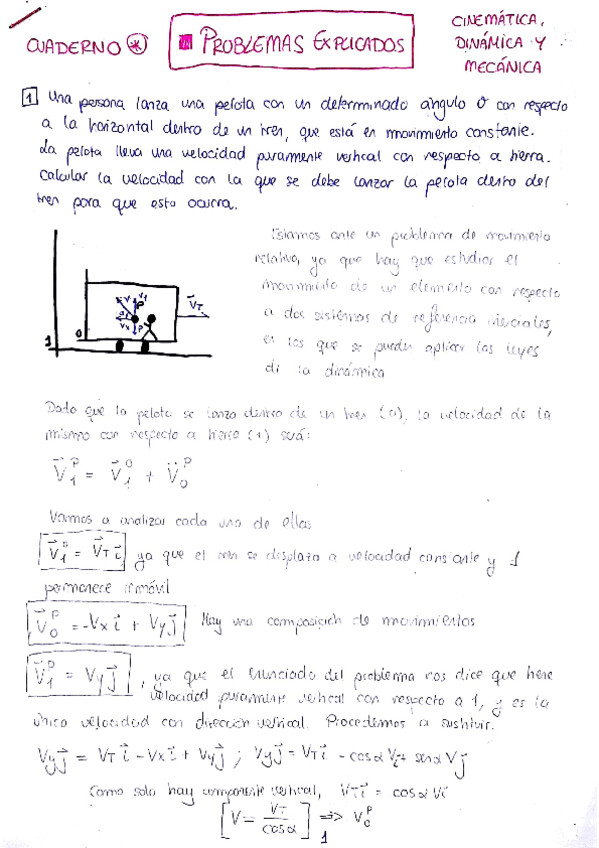 CUADERNO * PROBLEMAS EXPLICADOS CINEMÁTICA, DINÁMICA Y MECÁNICA
1 Una persona lanza una pelota con un determinado angulo θ con respecto
a la horizontal dentro de un tren, que está en movimiento constante.
La pelota lleva una velocidad puramente vertical con respecto a tierra.
Calcular la velocidad con la que se debe lanzar la pelota dentro del
tren para que esto ocurra.
Estamos ante un problema de movimiento
relativo, ya que hay que estudiar el
movimiento de un elemento con respecto
a dos sistemas de referencia inerciales,
en los que se pueden aplicar las leyes
de la dinámica
1 0 V Vy P Vx θ V⃗T
Dado que la pelota se lanza dentro de un tren (0), la velocidad de la
mismo con respecto a tierra (1) será:
V⃗₁ᴾ = V⃗₁⁰ + V⃗₀ᴾ
Vamos a analizar cada una de ellas
V⃗₁⁰ = V⃗T i⃗, ya que el tren se desplaza a velocidad constante y 1
permanece inmóvil
V⃗₀ᴾ = -Vx i⃗ + Vy j⃗ Hay una composición de movimientos
V⃗₁ᴾ = Vy j⃗, ya que el enunciado del problema nos dice que tiene
velocidad puramente vertical con respecto a 1, y es la
única velocidad con dirección vertical. Procedemos a sustituir.
Vy j⃗ = VT i⃗ - Vx i⃗ + Vy j⃗ ; Vy j⃗ = VT i⃗ - cosα V i⃗ + senα V j⃗
Como solo hay componente vertical, VT i⃗ = cosα V i⃗
[V = VT / cosα] ⇒ V₀ᴾ
1